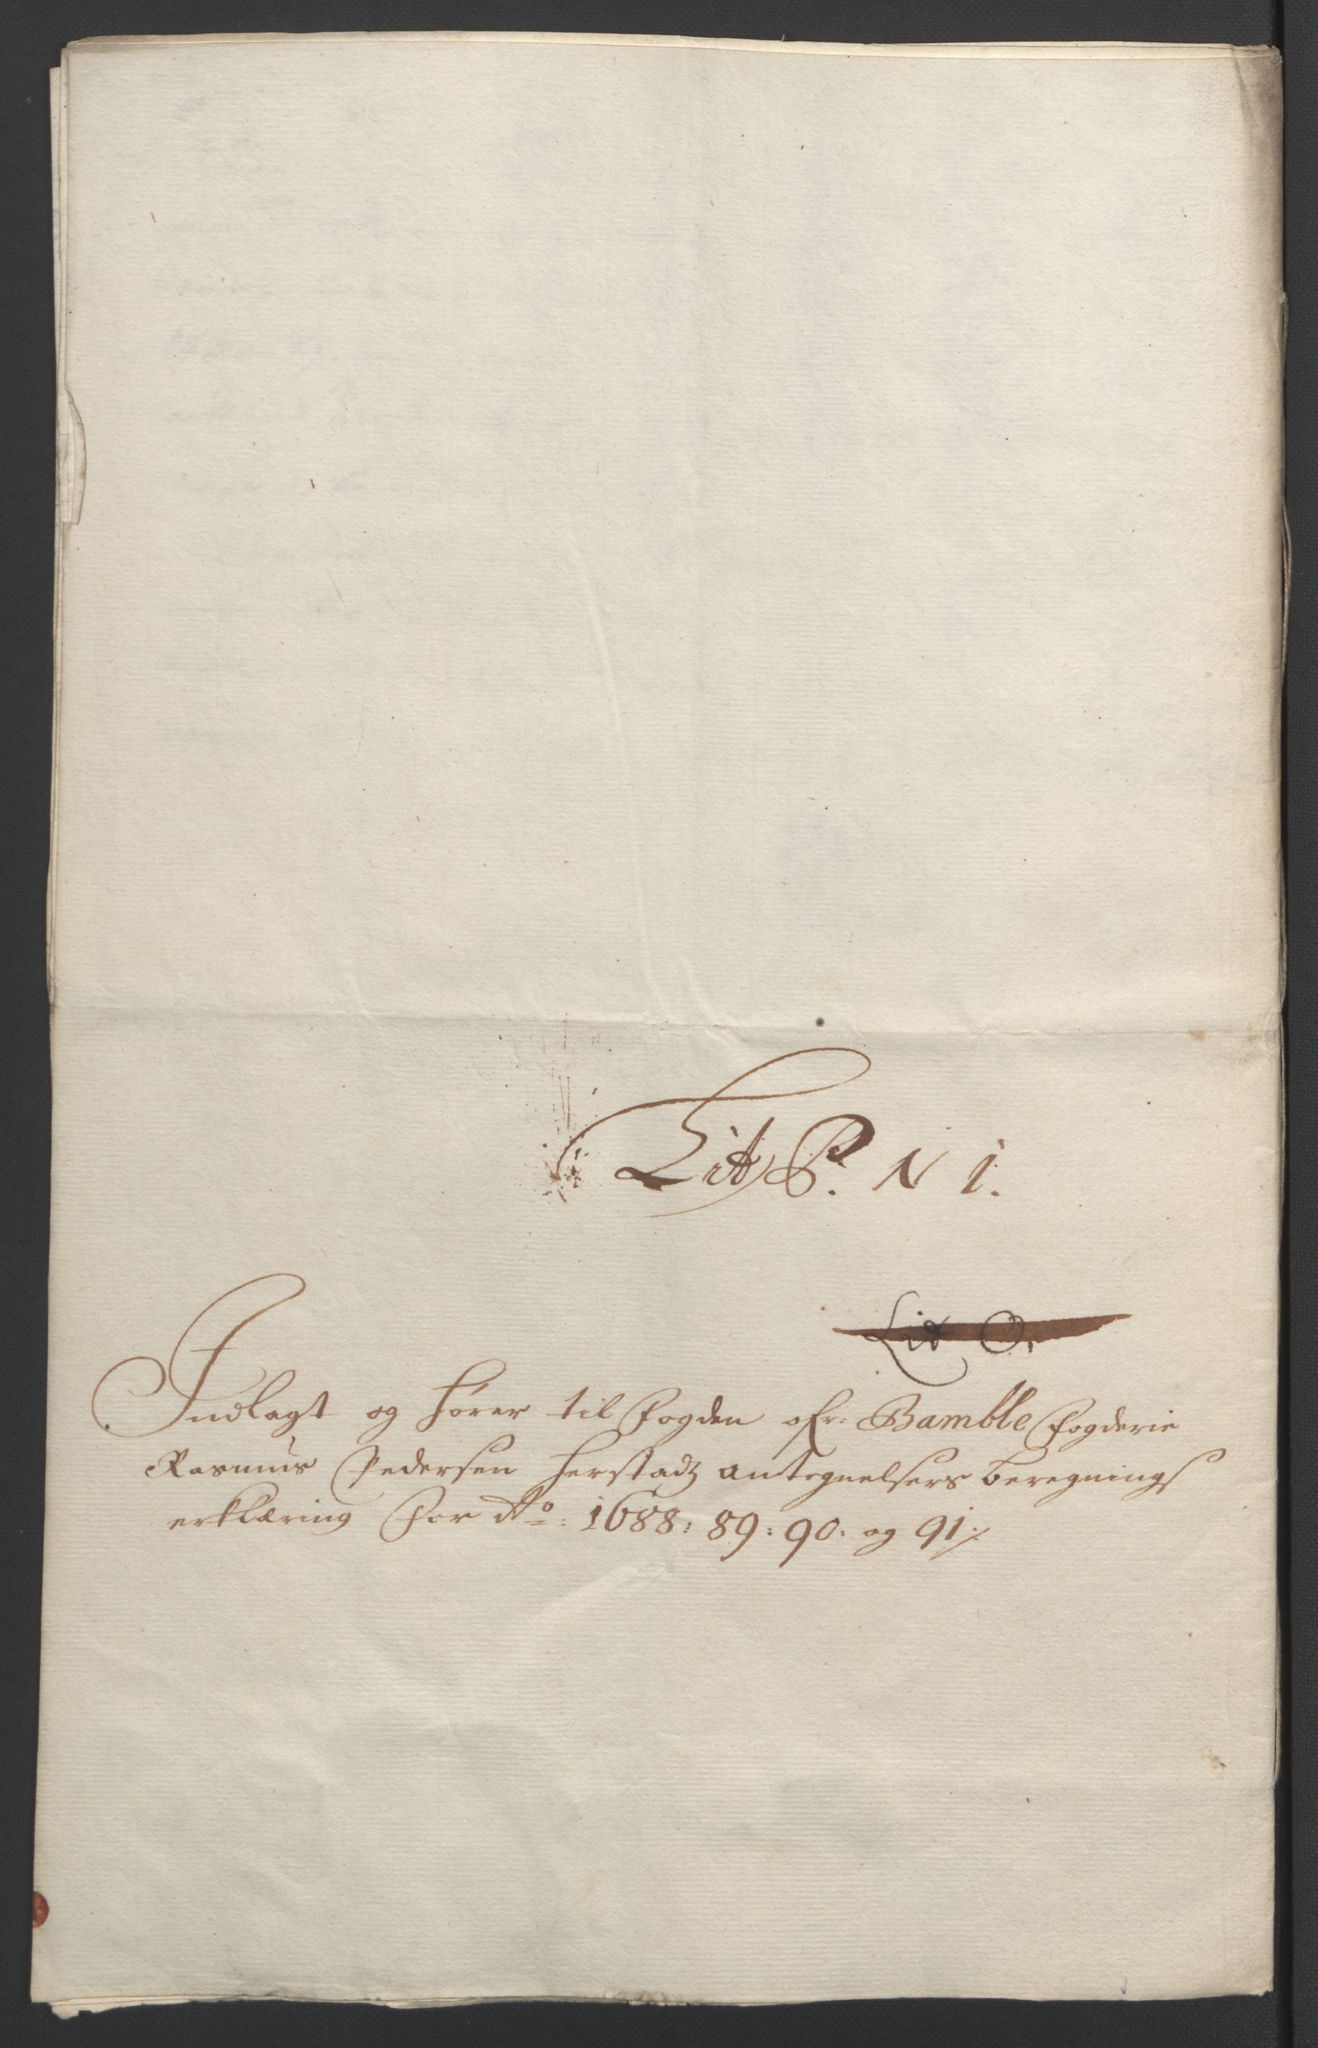 Lit P. N 1.
Lit O.
Indlagt og hörer til fogden ofr: Bamble fogderie
Rasmus Pedersen Herstadz antegnelsers beregnings
erklæring for Ao: 1688: 89: 90: og 91:/.